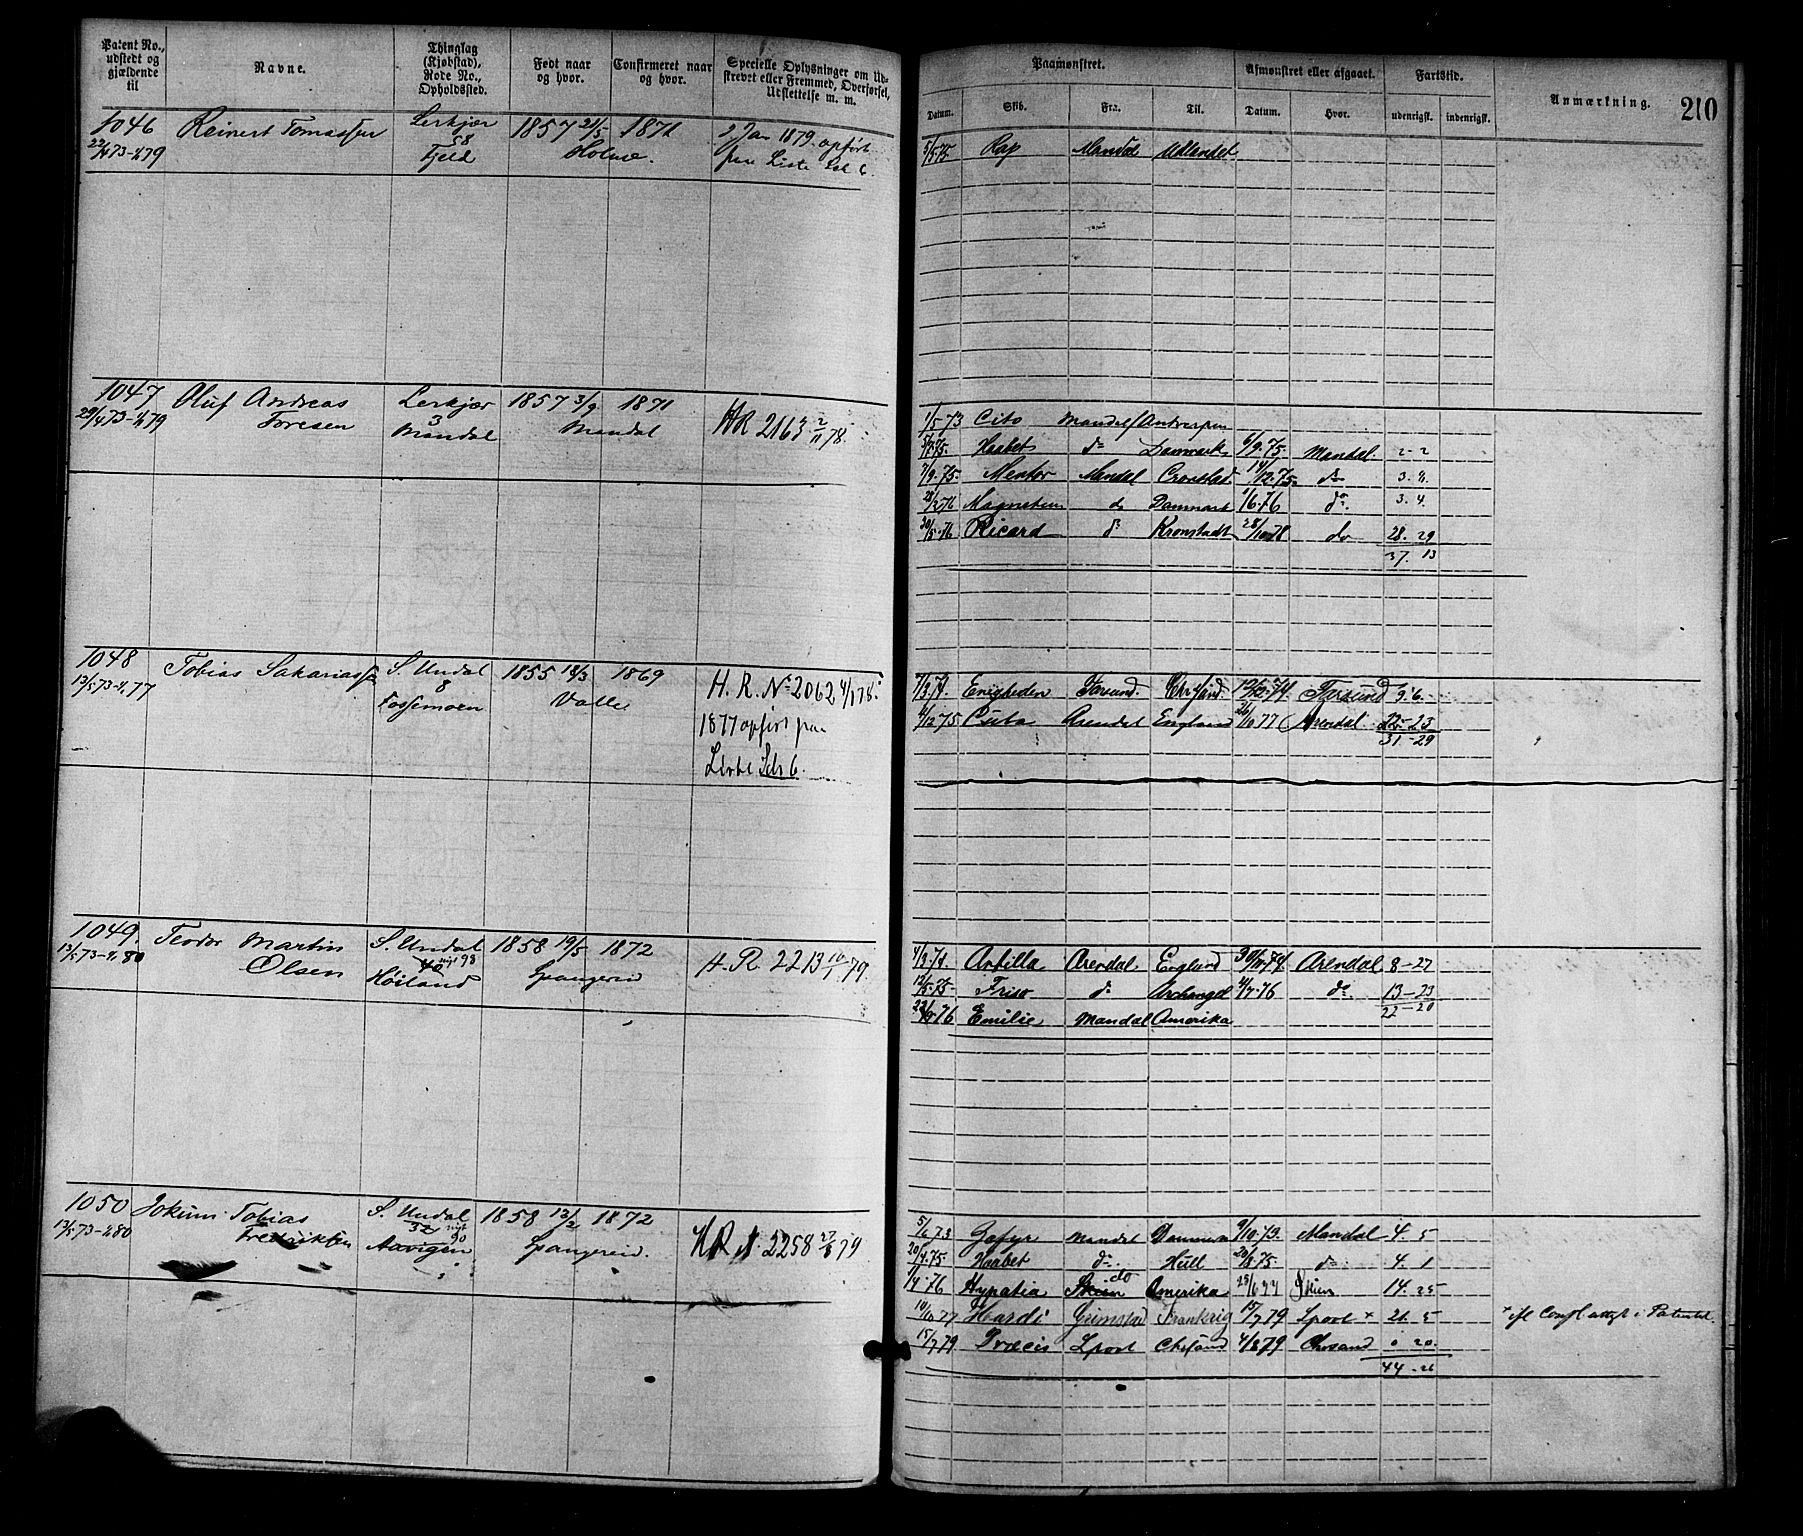 Patent No., udstedt og gjældende til
Navne.
Thinglag (Kjøbstad), Rode No., Opholdssted.
Født naar og hvor.
Confirmeret naar og hvor.
Specielle Oplysninger om Udskrevet eller Fremmed, Overførsel, Udslettelse m. m.
Paamønstret.
Datum.
Skib.
Fra.
Til.
Afmønstret eller afgaaet.
Datum.
Hvor.
Fartstid.
udenrigsk.
indenrigsk.
Anmærkning.
210
1046 Reinert Tomassen Lerkjær 1857 21/5 1871 2 Jan 1879 opført
58
Fjeld Holme. paa Liste
5/5.75 Rap Mandal Udlandet
1047 Oluf Andreas Lerkjær 1857 3/9 1871
Toresen 3 Mandal Mandal HR 2163 2/11 78.
1/5-73 Cito Mandal Antwerpen
Haabet do Danmark 6/9.75 Mandal. 2-2
7/9.75 Mentor Mandal Cronstad 14/12.75 do 3.8.
28/2.76 Magnetim do Danmark 1/6.76 do. 3.4.
30/5.76 Ricard do Kronstadt 28/10 78 do 28.29
37.13
1048 Tobias Sakariassen S. Undal 1855 18/3 1869 H. R. No 2062 4/1 78.
13/5.73-77 8
Fossemoen Valle 1877 opført paa
Liste
7/3.74. Enigheden Farsund. 74 Farsund 9.6.
4/12.75. Cuba Arendal England 26/10 77 Arendal 22-23
31-29
1049. Teodor Martin S. Undal 1858 19/5 1872
13/5.73-80 Olsen 40 nyt 98
Høiland Spangereid H. R. 2213 10/1 79.
4/3.74. Artilla Arendal England 30/11.74. Arendal 8-27
12/5.75- Friso do Archangel 4/7.76 do 13-23
22-20
22/9.76 Emilie Mandal Amerika
1050 Jokum Tobias S. Undal 1858 12/2 1872
13/5.73-80 Fredriksen 32 nyt 90
Aavigen Spangereid. HR No 2258 27/8 79
5/6 73 Mandal 9/10.73. Mandal 4.5
20/4.75 Haabet do. Hull 20/8.75 do 4.1
1/4.76 Hypatia Skien do Amerika 25/6 77 Skien 14.25
10/10 77 Hardi Grimstad Frankrig 15/7 79 Lpool + 21.5
+ ifl Consl. attest i Patentet.
15/7 79 Præcis Lpool Chrsand 4/8 79 Chrsand 0.20.
44-26